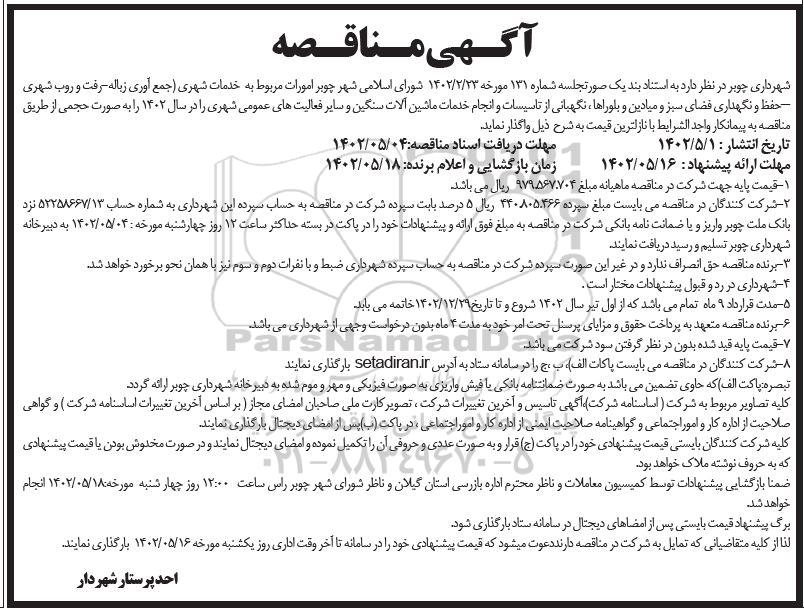 آگهی مناقصه
شهرداری چوبر در نظر دارد به استناد بند یک صورتجلسه شماره ۱۳۱ مورخه ۱۴۰۲/۲/۲۳ شورای اسلامی شهر چوبر امورات مربوط به خدمات شهری (جمع آوری زباله-رفت و روب شهری
-حفظ و نگهداری فضای سبز و میادین و بلوراها ، نگهبانی از تاسیسات و انجام خدمات ماشین آلات سنگین و سایر فعالیت های عمومی شهری را در سال ۱۴۰۲ را به صورت حجمی از طریق
مناقصه به پیمانکار واجد الشرایط با نازلترین قیمت به شرح ذیل واگذار نماید.
تاریخ انتشار : ۱۴۰۲/۵/۱ مهلت دریافت اسناد مناقصه:۱۴۰۲/۰۵/۰۴
مهلت ارائه پیشنهاد : ۱۴۰۲/۰۵/۱۶ زمان بازگشایی و اعلام برنده: ۱۴۰۲/۰۵/۱۸
۱-قیمت پایه جهت شرکت در مناقصه ماهیانه مبلغ ۹۷۹،۵۶۷،۷۰۴ ریال می باشد.
۲-شرکت کنندگان در مناقصه می بایست مبلغ سپرده ۴۴۰،۸۰۵،۴۶۶ ریال ۵ درصد بابت سپرده شرکت در مناقصه به حساب سپرده این شهرداری به شماره حساب ۵۲۲۵۸۶۶۷/۱۳ نزد
بانک ملت چوبر واریز و یا ضمانت نامه بانکی شرکت در مناقصه به مبلغ فوق ارائه و پیشنهادات خود را در پاکت در بسته حداکثر ساعت ۱۲ روز چهارشنبه مورخه : ۱۴۰۲/۰۵/۰۴ به دبیرخانه
شهرداری چوبر تسلیم و رسید دریافت نمایند.
۳-برنده مناقصه حق انصراف ندارد و در غیر این صورت سپرده شرکت در مناقصه به حساب سپرده شهرداری ضبط و با نفرات دوم و سوم نیز با همان نحو برخورد خواهد شد.
۴-شهرداری در رد و قبول پیشنهادات مختار است .
۵-مدت قرارداد ۹ ماه تمام می باشد که از اول تیر سال ۱۴۰۲ شروع و تا تاریخ۱۴۰۲/۱۲/۲۹خاتمه می یابد.
۶-برنده مناقصه متعهد به پرداخت حقوق و مزایای پرسنل تحت امر خود به مدت ۴ ماه بدون درخواست وجهی از شهرداری می باشد.
۷-قیمت پایه قید شده بدون در نظر گرفتن سود شرکت می باشد.
۸-شرکت کنندگان در مناقصه می بایست پاکات الف)، ب ،ج را در سامانه ستاد به آدرس setadiran.ir بارگذاری نمایند
تبصره:پاکت الف)که حاوی تضمین می باشد به صورت ضمانتنامه بانکی یا فیش واریزی به صورت فیزیکی و مهر و موم شده به دبیرخانه شهرداری چوبر ارائه گردد.
کلیه تصاویر مربوط به شرکت ( اساسنامه شرکت)،آگهی تاسیس و آخرین تغییرات شرکت ، تصویر کارت ملی صاحبان امضای مجاز ( بر اساس آخرین تغییرات اساسنامه شرکت ) و گواهی
صلاحیت از اداره کار و اموراجتماعی و گواهینامه صلاحیت ایمنی از اداره کار و اموراجتماعی ، در پاکت (ب)پس از امضای دیجتال بارگذاری نمایند.
کلیه شرکت کنندگان بایستی قیمت پیشنهادی خود را در پاکت (ج) قرار و به صورت عددی و حروفی آن را تکمیل نموده و امضای دیجتال نمایند و در صورت مخدوش بودن یا قیمت پیشنهادی
که به حروف نوشته ملاک خواهد بود.
ضمنا بازگشایی پیشنهادات توسط کمیسیون معاملات و ناظر محترم اداره بازرسی استان گیلان و ناظر شورای شهر چوبر راس ساعت ۱۲:۰۰ روز چهار شنبه مورخه:۱۴۰۲/۰۵/۱۸ انجام
خواهد شد.
برگ پیشنهاد قیمت بایستی پس از امضاهای دیجتال در سامانه ستاد بارگذاری شود.
لذا از کلیه متقاضیانی که تمایل به شرکت در مناقصه دارنددعوت میشود که قیمت پیشنهادی خود را در سامانه تا آخر وقت اداری روز یکشنبه مورخه ۱۴۰۲/۰۵/۱۶ بارگذاری نمایند.
احد پرستار شهردار
ParsNamadData
۰۲۱-۸۸۳۴۹۶۷۰-۵